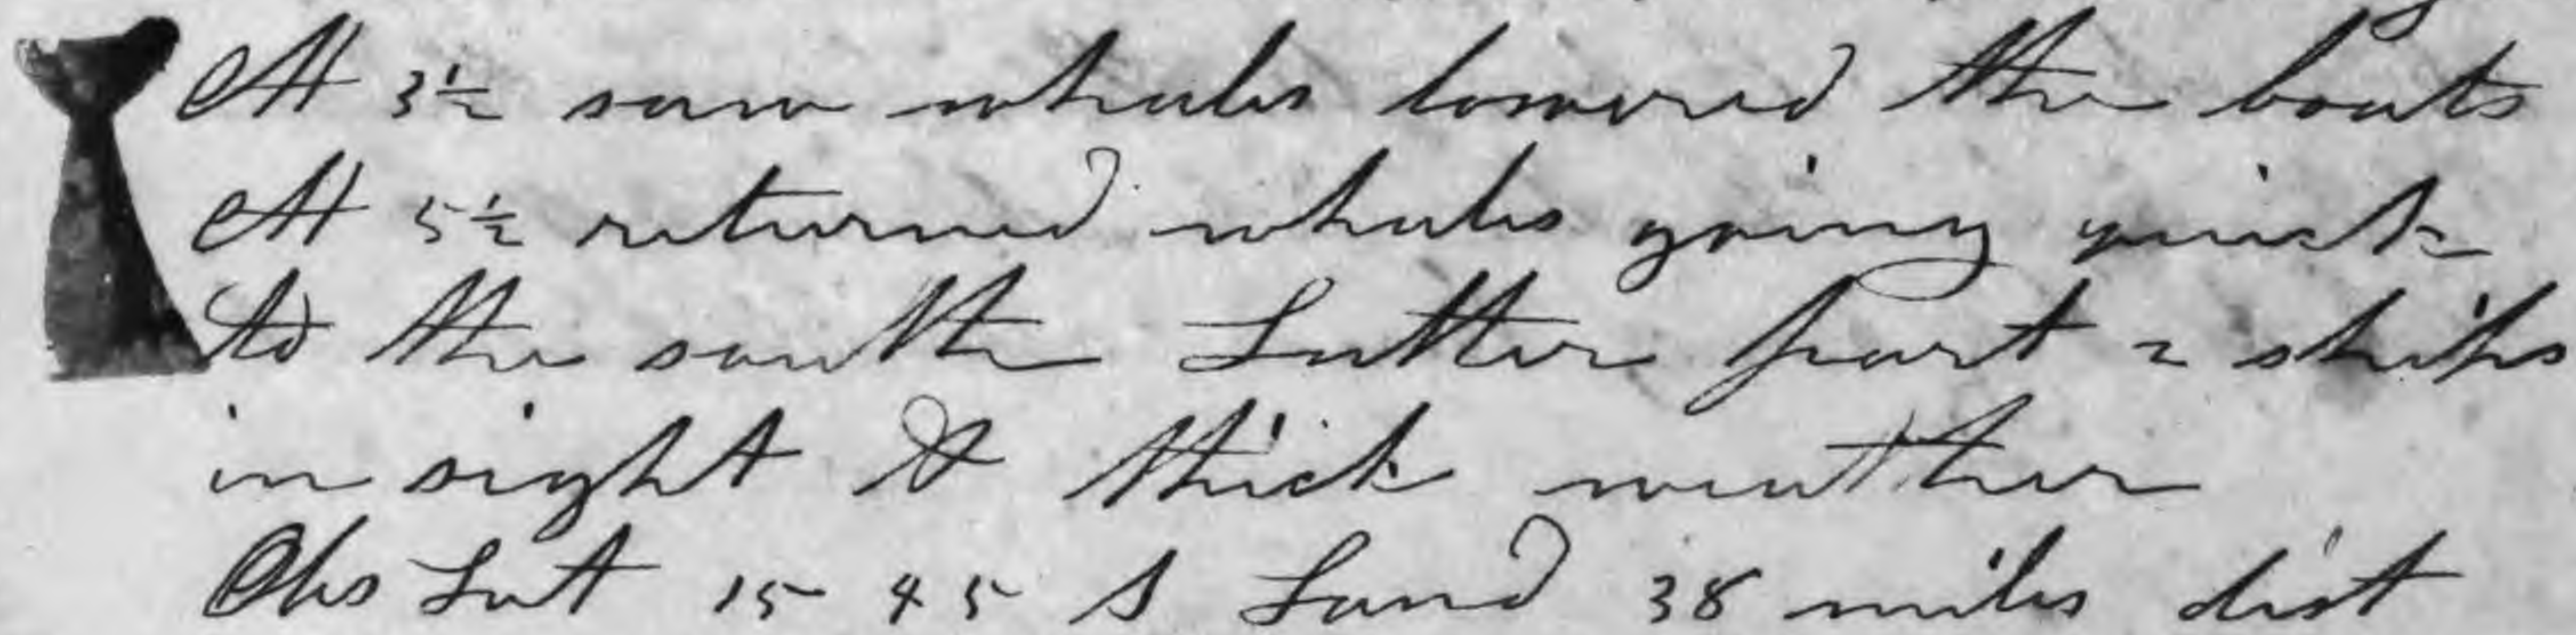 At 3½ saw whales lowered the boats
At 5½ returned whales going quick
to the south Latter part 2 ships
in sight & thick weather
Obs Lat 15 45 S Land 38 miles dist